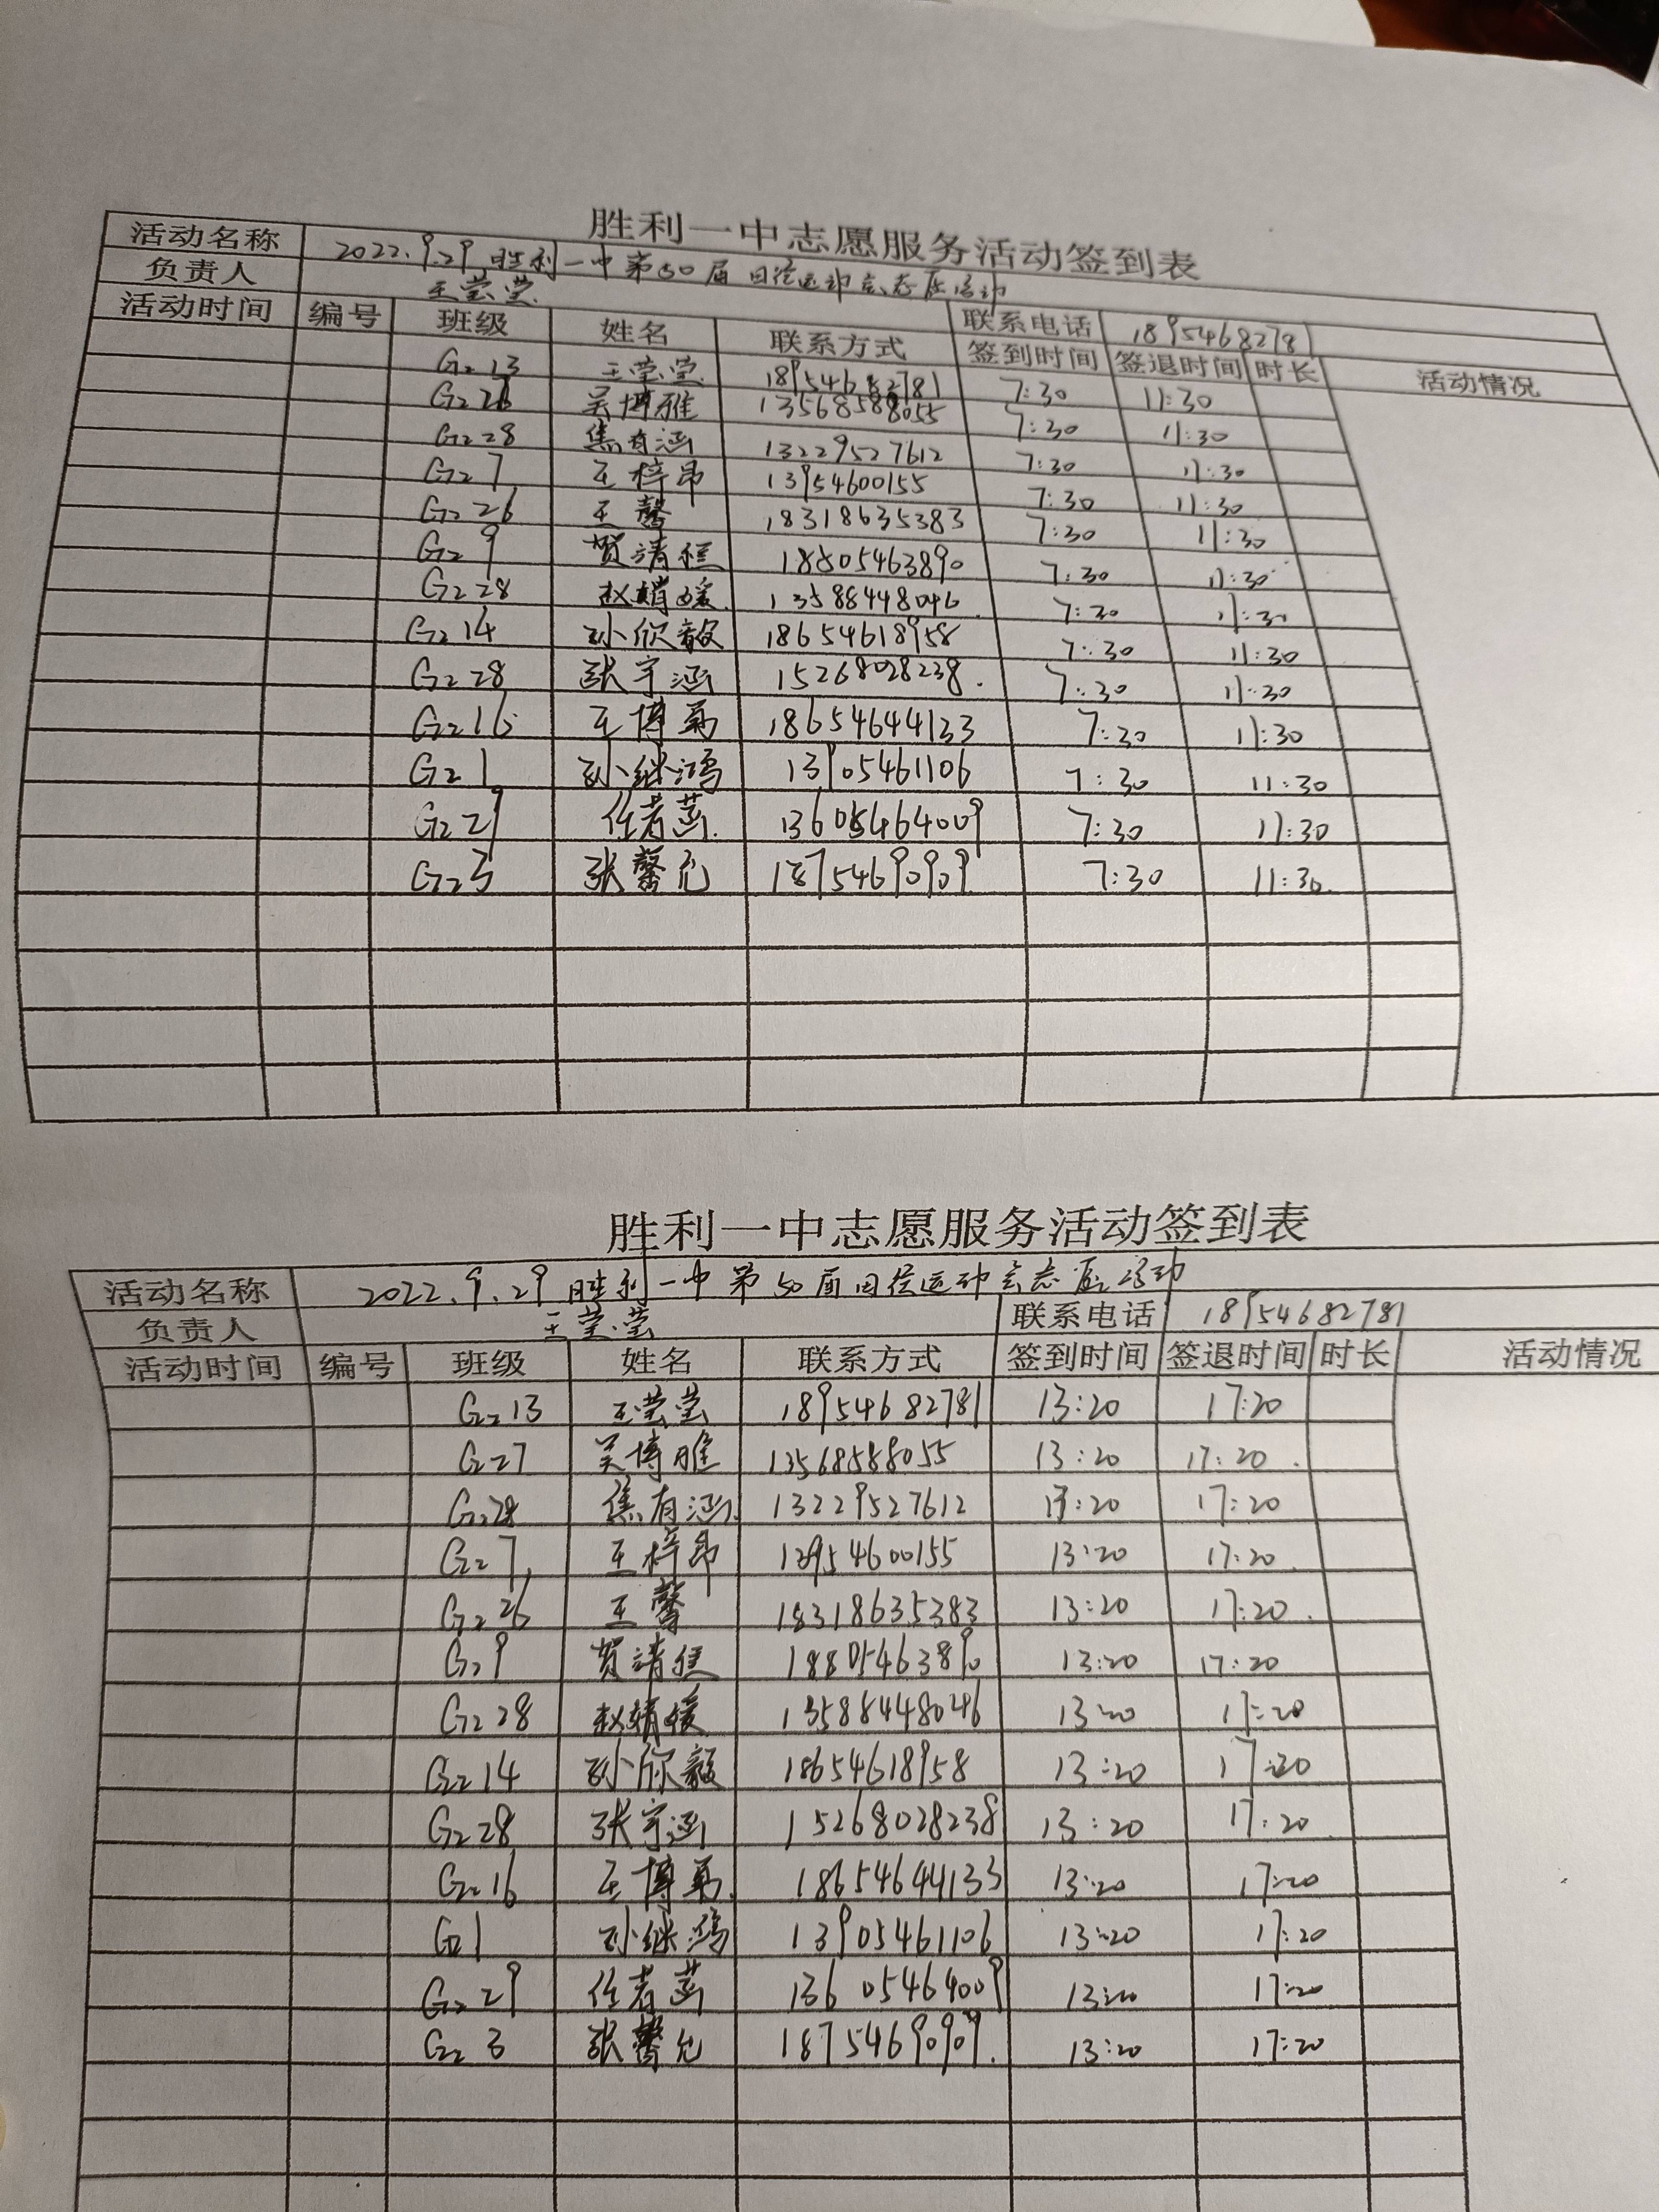 胜利一中志愿服务活动签到表
活动名称 2022.9.29 胜利一中第50届田径运动会志愿活动
负责人 王莹莹 联系电话 18954682781
活动时间 编号 班级 姓名 联系方式 签到时间 签退时间 时长 活动情况
G2 13 王莹莹 18954682781 7:30 11:30
G2 26 吴博雅 13568588055 7:30 11:30
G2 28 焦有涵 13229527612 7:30 11:30
G2 7 王梓昂 13954600155 7:30 11:30
G2 26 王馨 18318635383 7:30 11:30
G2 9 贺靖 18805463890 7:30 11:30
G2 28 赵婧媛 13588448046 7:30 11:30
G2 14 孙欣毅 18654618958 7:30 11:30
G2 28 张宇涵 15268028238 7:30 11:30
G2 16 王博 18654644133 7:30 11:30
G2 1 孙继鸿 13905461106 7:30 11:30
G2 29 任若菡 13605464009 7:30 11:30
G2 3 张馨允 18754690909 7:30 11:30
胜利一中志愿服务活动签到表
活动名称 2022.9.29 胜利一中第50届田径运动会志愿活动
负责人 王莹莹 联系电话 18954682781
活动时间 编号 班级 姓名 联系方式 签到时间 签退时间 时长 活动情况
G2 13 王莹莹 18954682781 13:20 17:20
G2 27 吴博雅 13568588055 13:20 17:20
G2 28 焦有涵 13229527612 13:20 17:20
G2 7 王梓昂 13954600155 13:20 17:20
G2 26 王馨 18318635383 13:20 17:20
G2 9 贺靖 18805463890 13:20 17:20
G2 28 赵婧媛 13588448046 13:20 17:20
G2 14 孙欣毅 18654618958 13:20 17:20
G2 28 张宇涵 15268028238 13:20 17:20
G2 16 王博 18654644133 13:20 17:20
G2 1 孙继鸿 13905461106 13:20 17:20
G2 29 任若菡 13605464009 13:20 17:20
G2 3 张馨允 18754690909 13:20 17:20